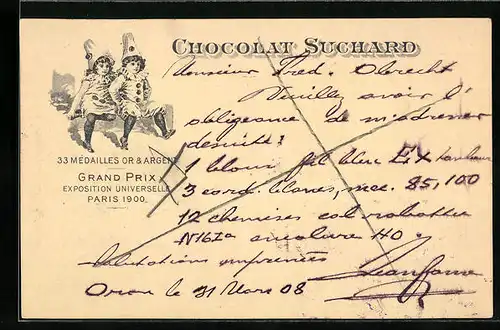 CHOCOLAT SUCHARD
Monsieur Fred. Obrecht
Veuillez avoir l'
obligeance de m'adresser
de suite:
1 fil bleu
3 cord. blancs, mec. 85, 100
12 chemises col rabattu
encolure 40.
Salutations empressées
Oran le 31 Mars 08
33 MÉDAILLES OR & ARGENT
GRAND PRIX
EXPOSITION UNIVERSELLE
PARIS 1900.